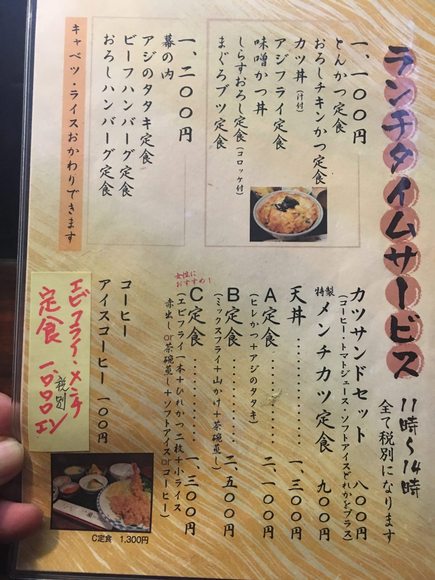 ランチタイムサービス
11時〜14時
全て税別になります
一、一〇〇円
とんかつ定食
おろしチキンかつ定食
カツ丼(汁付)
アジフライ定食
味噌かつ丼
しらすおろし定食(コロッケ付)
まぐろブツ定食
一、二〇〇円
幕の内
アジのタタキ定食
ビーフハンバーグ定食
おろしハンバーグ定食
キャベツ・ライスおかわりできます
カツサンドセット 八〇〇円
(コーヒー・トマトジュース・ソフトアイスどれかをプラス)
特製メンチカツ定食 九〇〇円
天丼 一、三〇〇円
A定食 二、一〇〇円
(ヒレかつ+アジのタタキ)
B定食 二、五〇〇円
(ミックスフライ+山かけ+茶碗蒸し)
女性におすすめ!
C定食 一、三〇〇円
(エビフライ一本+ひれかつ二枚+小ライス
赤出しor茶碗蒸し+ソフトアイスorコーヒー)
コーヒー
アイスコーヒー 一〇〇円
エビフライ・メンチ
定食 税別 1,000エン
C定食 1,300円